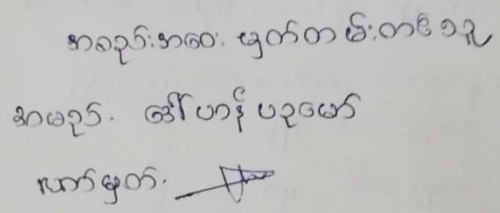 အစည်းအဝေး မှတ်တမ်းတင်သူ
အမည်. ဒေါ်ဟာန်ပဥမော်
လက်မှတ်.